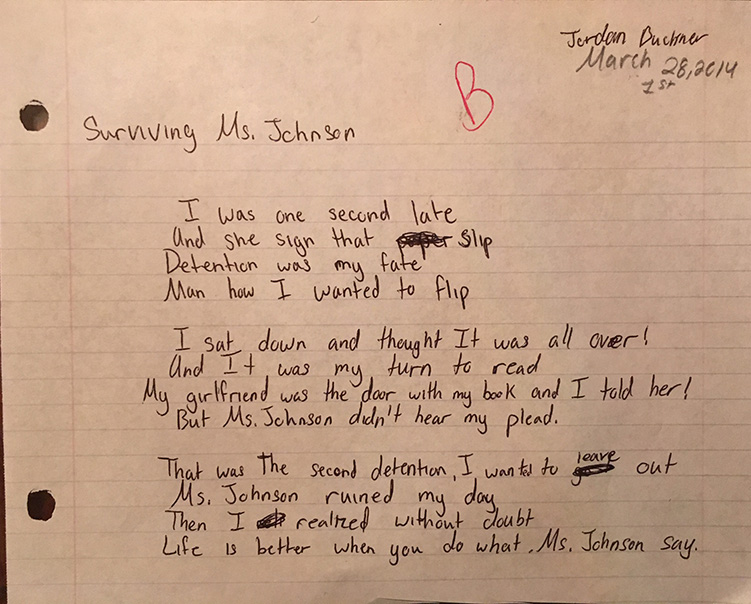 Jordan Buckner
March 28, 2014
1st
B
Surviving Ms. Johnson
I was one second late
And she sign that slip
Detention was my fate
Man how I wanted to flip
I sat down and thought It was all over!
And It was my turn to read
My girlfriend was the door with my book and I told her!
But Ms. Johnson didn't hear my plead.
That was The second detention, I wanted to leave out
Ms. Johnson ruined my day
Then I realized without doubt
Life is better when you do what Ms. Johnson say.